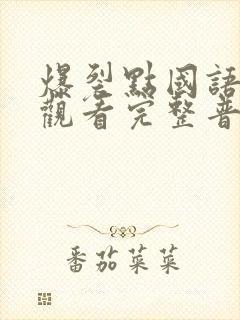 爆裂點國語
觀看完整普
番茄菜菜